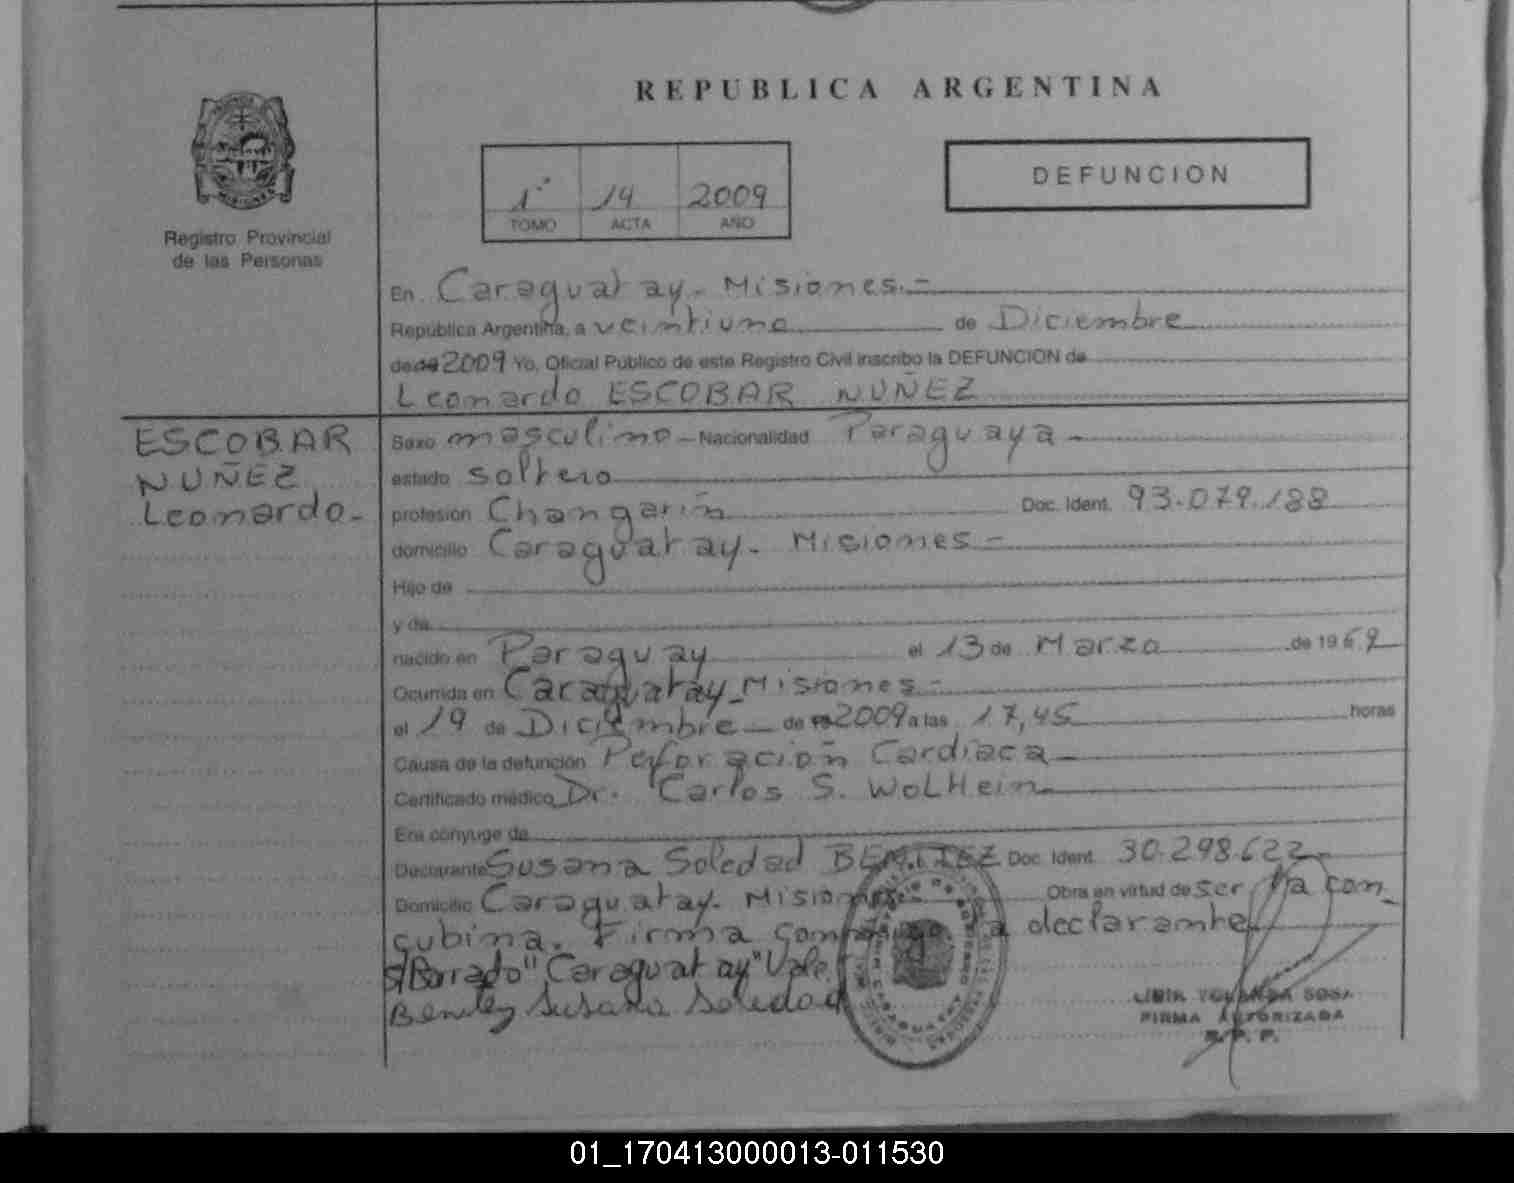 REPUBLICA ARGENTINA
MISIONES
Registro Provincial
de las Personas
1º 14 2009
TOMO ACTA AÑO
DEFUNCION
En Caraguatay - Misiones.-
República Argentina, a veintiuno de Diciembre
de 2009 Yo, Oficial Público de este Registro Civil inscribo la DEFUNCION de
Leonardo ESCOBAR NUÑEZ
ESCOBAR
NUÑEZ
Leonardo-
Sexo masculino - Nacionalidad Paraguaya -
estado soltero
profesión Changarín Doc. Ident. 93.079.188
domicilio Caraguatay - Misiones -
Hijo de
y de
nacido en Paraguay el 13 de Marzo de 1969
Ocurrida en Caraguatay - Misiones -
el 19 de Diciembre - de 2009 a las 17,45 horas
Causa de la defunción Perforación Cardiaca -
Certificado médico Dr. Carlos S. WOLHein
Era cónyuge de
Declarante Susana Soledad BENITEZ Doc. Ident. 30.298.622 -
Domicilio Caraguatay - Misiones Obra en virtud de ser la con-
cubina. Firma la declarante
s/Borrado "Caraguatay" Vale.
Benitez Susana Soledad
LIDIA YOLANDA SOSA
FIRMA AUTORIZADA
R. P. P.
01_170413000013-011530